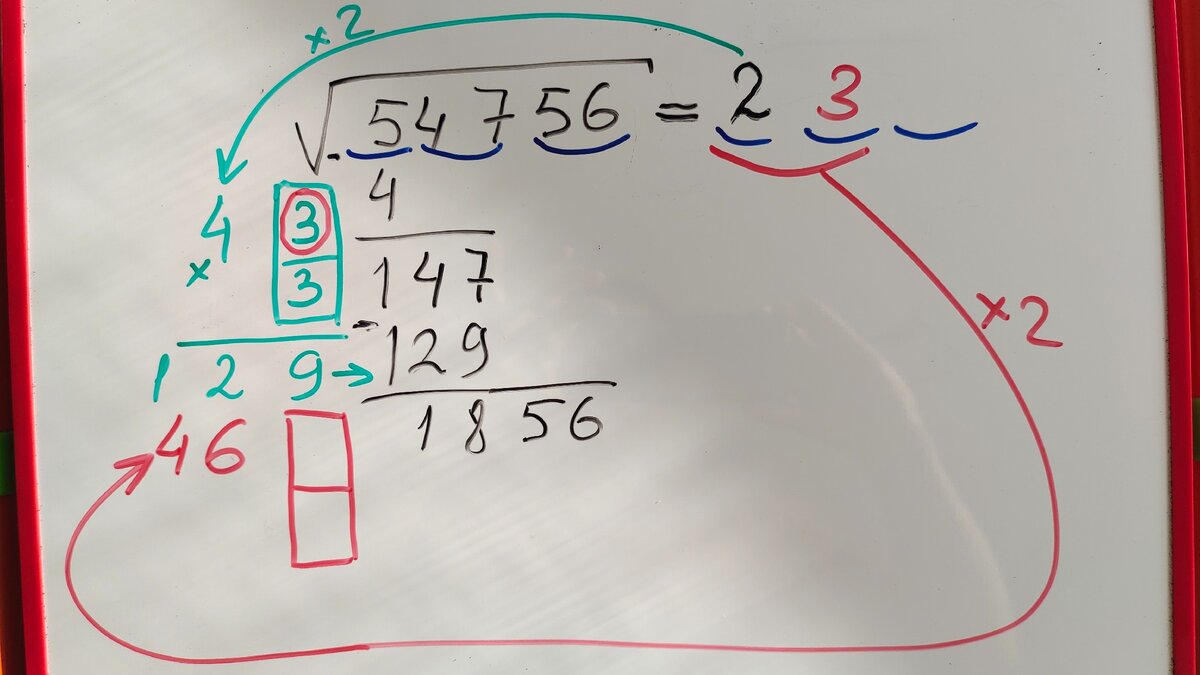 ×2
√54756 = 2 3
4 3 4
× 3 147
- 129
1 2 9 → 1856
46
×2